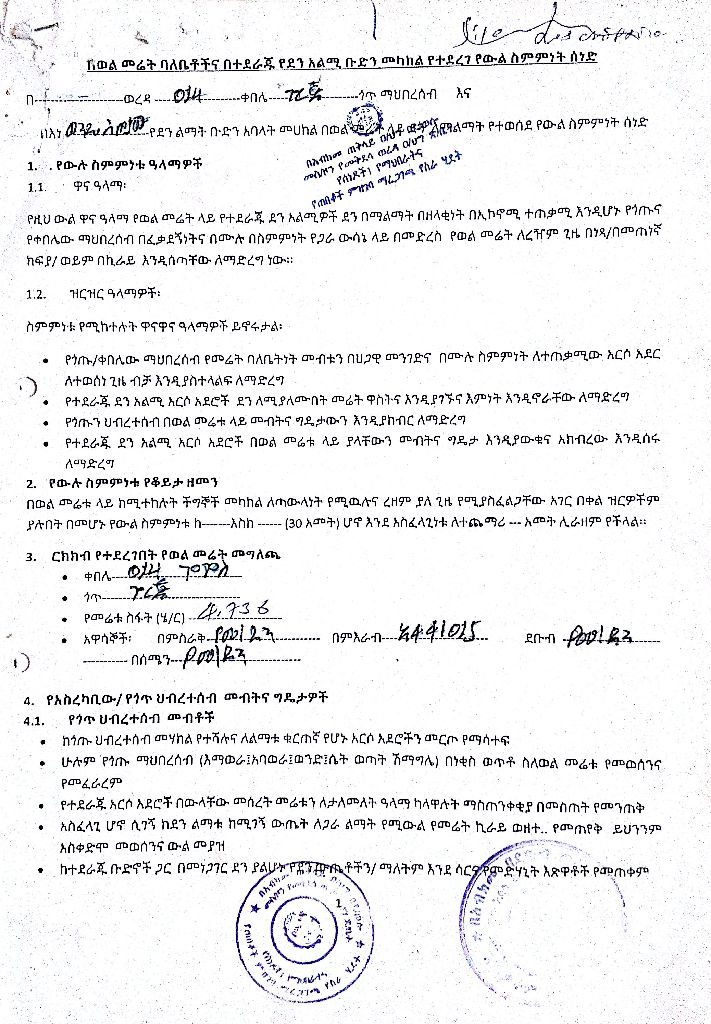 የወል መሬት ባለቤቶችና በተደራጁ የደን አልሚ ቡድን መካከል የተደረገ የውል ስምምነት ሰነድ
በ ወረዳ 014 ቀበሌ ጎጥ ማህበረሰብ እና
በእነ የደን ልማት ቡድን አባላት መሀከል በወል ለማልማት የተወሰደ የውል ስምምነት ሰነድ
1. የውሉ ስምምነቱ ዓላማዎች
1.1. ዋና ዓላማ፡
የዚህ ውል ዋና ዓላማ የወል መሬት ላይ የተደራጁ ደን አልሚዎች ደን በማልማት በዘላቂነት በኢኮኖሚ ተጠቃሚ እንዲሆኑ የጎጡና
የቀበሌው ማህበረሰብ በፈቃደኝነትና በሙሉ በስምምነት የጋራ ውሳኔ ላይ በመድረስ የወል መሬት ለረዥም ጊዜ በነጻ/በመጠነኛ
ክፍያ/ ወይም በኪራይ እንዲሰጣቸው ለማድረግ ነው፡፡
1.2. ዝርዝር ዓላማዎች፡
ስምምነቱ የሚከተሉት ዋናዋና ዓላማዎች ይኖሩታል፡
• የጎጡ/ቀበሌው ማህበረሰብ የመሬት ባለቤትነት መብቱን በህጋዊ መንገድና በሙሉ ስምምነት ለተጠቃሚው አርሶ አደር
ለተወሰነ ጊዜ ብቻ እንዲያስተላልፍ ለማድረግ
• የተደራጁ ደን አልሚ አርሶ አደሮች ደን ለሚያለሙበት መሬት ዋስትና እንዲያገኙና እምነት እንዲኖራቸው ለማድረግ
• የጎጡን ህብረተሰብ በወል መሬቱ ላይ መብትና ግዴታውን እንዲያከብር ለማድረግ
• የተደራጁ ደን አልሚ አርሶ አደሮች በወል መሬቱ ላይ ያላቸውን መብትና ግዴታ እንዲያውቁና አክብረው እንዲሰሩ
ለማድረግ
2. የውሉ ስምምነቱ የቆይታ ዘመን
በወል መሬቱ ላይ ከሚተከሉት ችግኞች መካከል ለጣውላነት የሚዉሉና ረዘም ያለ ጊዜ የሚያስፈልጋቸው አገር በቀል ዝርዎችም
ያሉበት በመሆኑ የውል ስምምነቱ ከ-------እስከ ------ (30 አመት) ሆኖ እንደ አስፈላጊነቱ ለተጨማሪ --- አመት ሊራዘም የችላል፡፡
3. ርክክብ የተደረገበት የወል መሬት መግለጫ
• ቀበሌ 014
• ጎጥ
• የመሬቱ ስፋት (ሄ/ር) 4.736
• አዋሳኞች፡ በምስራቅ በምእራብ ደቡብ
በሰሜን
4. የአስረካቢው/ የጎጥ ህብረተሰብ መብትና ግዴታዎች
4.1. የጎጥ ህብረተሰብ መብቶች
• ከጎጡ ህብረተሰብ መሃከል የተሻሉና ለልማቱ ቁርጠኛ የሆኑ አርሶ አደሮችን መርጦ የማሳተፍ
• ሁሉም የጎጡ ማህበረሰብ (እማወራ፤አባወራ፤ወንድ፤ሴት ወጣት ሽማግሌ) በነቂስ ወጥቶ ስለወል መሬቱ የመወሰንና
የመፈራረም
• የተደራጁ አርሶ አደሮች በውላቸው መሰረት መሬቱን ለታለመለት ዓላማ ካላዋሉት ማስጠንቀቂያ በመስጠት የመንጠቅ
• አስፈላጊ ሆኖ ሲገኝ ከደን ልማቱ ከሚገኝ ውጤት ለጋራ ልማት የሚውል የመሬት ኪራይ ወዘተ.. የመጠየቅ ይህንንም
አስቀድሞ መወሰንና ውል መያዝ
• ከተደራጁ ቡድኖች ጋር በመነጋገር ደን ያልሆኑ የደን ውጤቶችን/ ማለትም እንደ ሳርና የምድሃኒት እጽዋቶች የመጠቀም